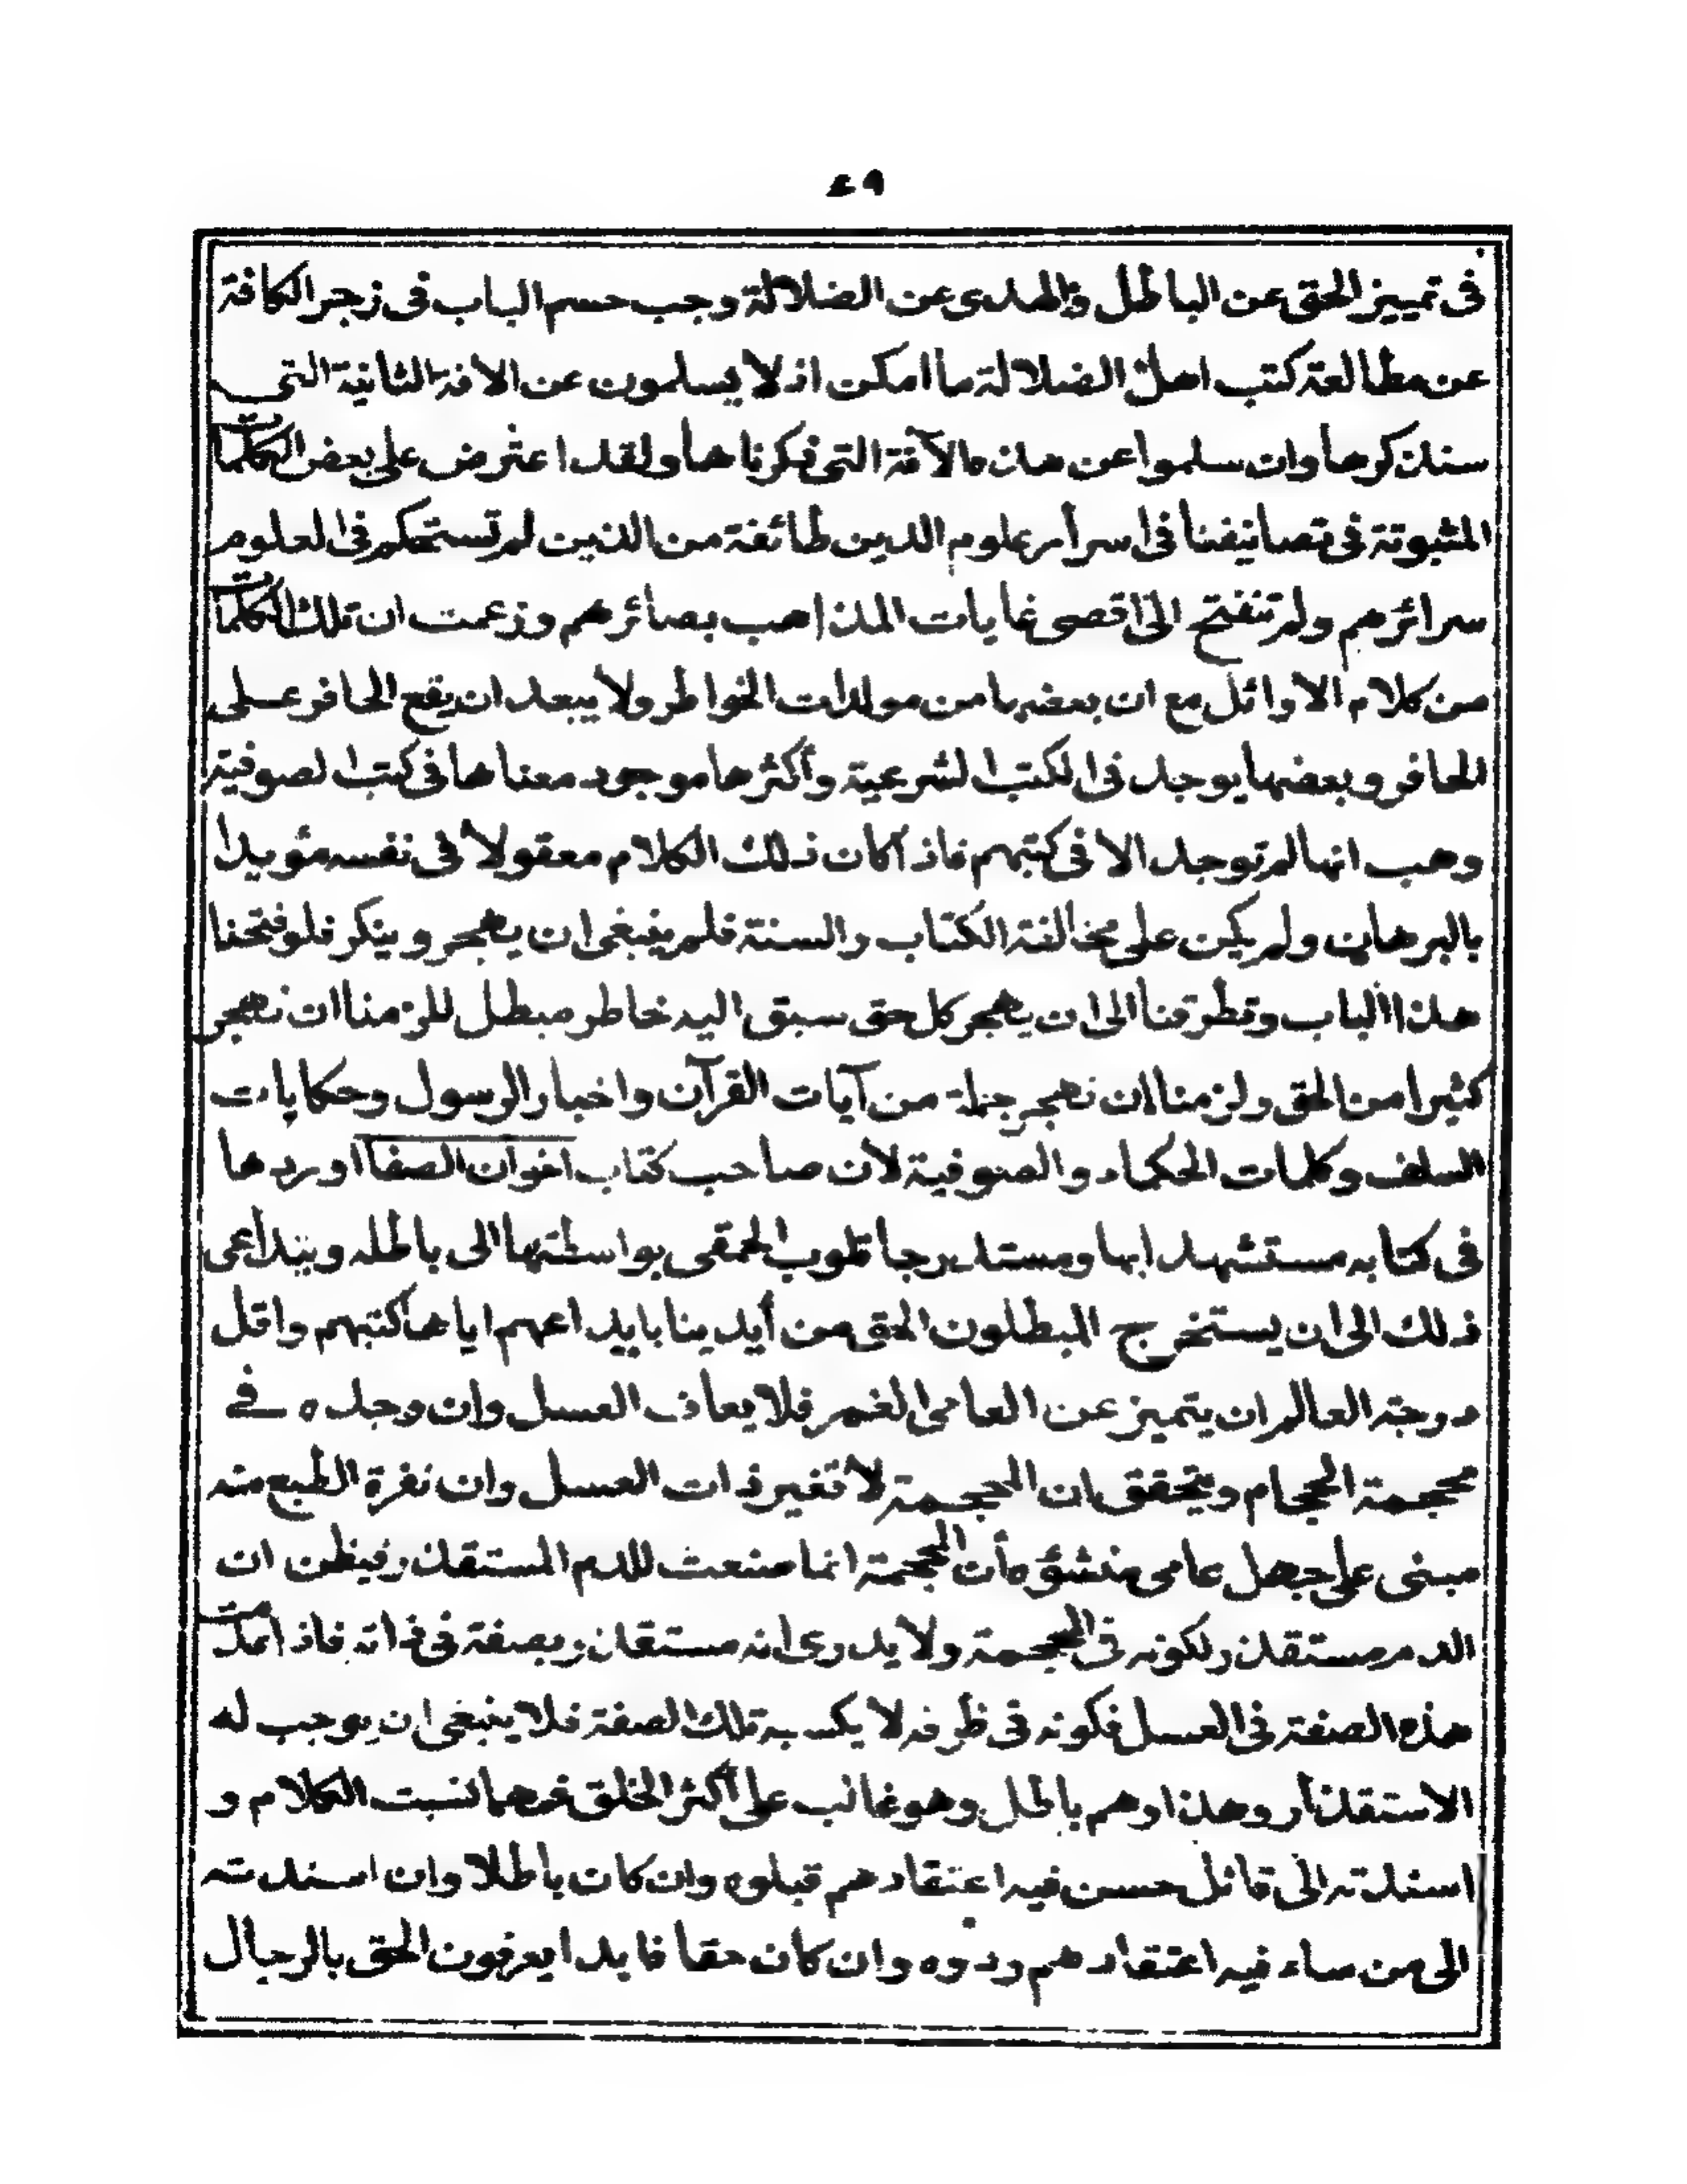 ٤٩
فى تمييز الحق عن الباطل والهدى عن الضلالة وجب حسم الباب فى زجر الكافة
عن مطالعة كتب اهل الضلالة ما امكن اذ لا يسلمون عن الافة الثانية التى
سنذكرها وان سلموا عن هذه الآفة التى ذكرناها ولقد اعترض على بعض الكلمات
المثبوتة فى تصانيفنا فى اسرار علوم الدين طائفة من الذين لم تستحكم فى العلوم
سرائرهم ولم تنفتح الى اقصى غايات المذاهب بصائرهم وزعمت ان تلك الكلمات
من كلام الاوائل مع ان بعضها من مولدات الخواطر ولا يبعد ان يقع الحافر على
الحافر وبعضها يوجد فى الكتب الشرعية وأكثرها موجود معناها فى كتب الصوفية
وهب انها لم توجد الا فى كتبهم فاذا كان ذلك الكلام معقولا فى نفسه مؤيدا
بالبرهان ولم يكن على مخالفة الكتاب والسنة فلم ينبغى ان يهجر وينكر فلو فتحنا
هذا الباب وتطرقنا الى ان يهجر كل حق سبق اليه خاطر مبطل للزمنا ان نهجر
كثيرا من الحق ولزمنا ان نهجر جملة من آيات القرآن واخبار الرسول وحكايات
السلف وكلمات الحكماء والصوفية لان صاحب كتاب اخوان الصفا اوردها
فى كتابه مستشهدا بها ومستدرجا قلوب الحمقى بواسطتها الى باطله ويتداعى
ذلك الى ان يستخرج المبطلون الحق من أيدينا بايداعهم اياها كتبهم واقل
درجة العالم ان يتميز عن العامى الغمر فلا يعاف العسل وان وجده فى
محجمة الحجام ويتحقق ان المحجمة لا تغير ذات العسل وان نفرة الطبع منه
مبنى على جهل عامى منشؤه أن المحجمة انما صنعت للدم المستقذر فيظن ان
الدم مستقذر لكونه فى المحجمة ولا يدرى انه مستقذر بصفة فى ذاته فاذا عدمت
هذه الصفة فى العسل فكونه فى ظرفه لا يكسبه تلك الصفة فلا ينبغى ان يوجب له
الاستقذار وهذا وهم باطل وهو غالب على أكثر الخلق فمهما نسبت الكلام و
اسندته الى قائل حسن فيه اعتقادهم قبلوه وان كان باطلا وان اسندته
الى من ساء فيه اعتقادهم ردوه وان كان حقا فابدا يعرفون الحق بالرجال